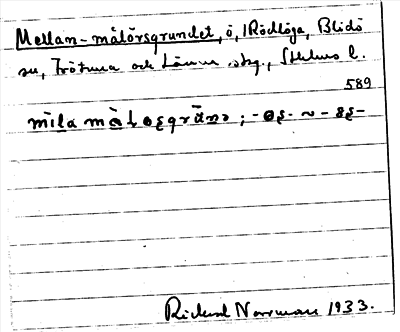 Mellan-målörsgrundet, ö, i Rödlöga, Blidö
sn, Frötuna och Länna skg., Sthlms l.
589
mīla må̀løsgrūnd; -øs- ~ -ɞs-
Rickard Norrman 1933.